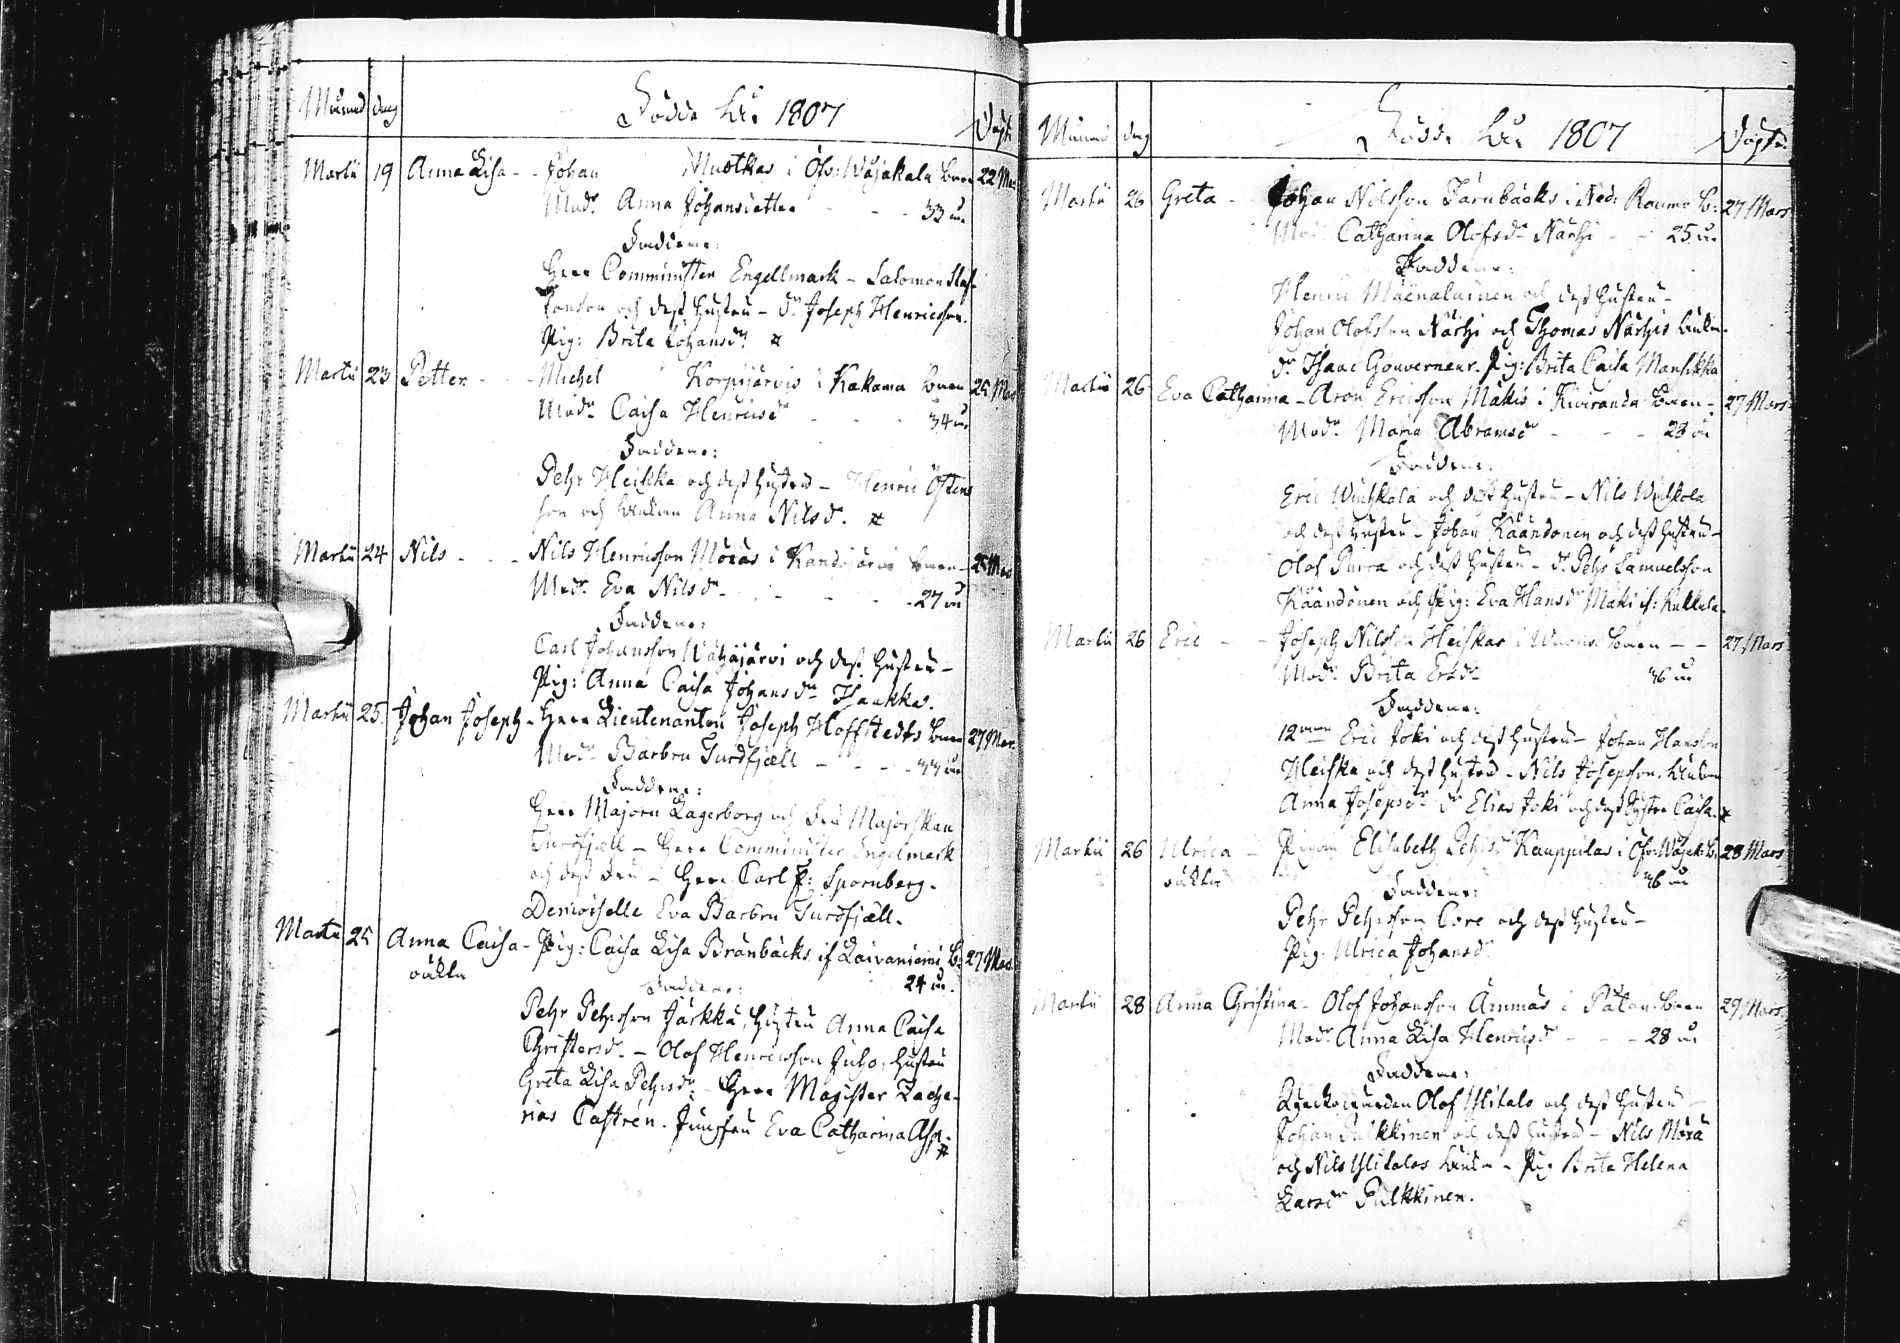 Månad dag Födde År 1807 Döpte
Martii 19 Anna Lisa - - Johan Muotkas i Öfv: Wojakala barn 22 Mar
Modr Anna Johansdotter - - - 33 år
Faddrar:
Herr Comminister Engellmark - Salomon Staf-
fansson och dess hustru - dr Joseph Henricsson.
Pig: Brita Johansdr
Martii 23 Petter - - - Michel Korpijärvis i Kakama barn 25 Mar
Modr Caisa Henricsdr - - - 34 år
Faddrar:
Pehr Heikka och dess hustru - Henric Östens
son och Anna Nilsd.
Martii 24 Nils - - - Nils Henricsson Moras i Kandojärvi barn - 25 Mar
Modr Eva Nilsdr - - - - 27 år
Faddrar:
Carl Johansson Wähäjärvi och dess hustru -
Pig: Anna Caisa Johansdr Thaukka.
Martii 25 Johan Joseph - Herr Lieutenanten Joseph Hoffstedts barn 27 Mar.
Modr Barbru Turdfjæll - - - - 33 år
Faddrar:
Herr Majoren Lagerborg och fru Majorskan
Turdfjæll - Herr Comminister Engelmark
och dess fru - Herr Carl P: Spornberg.
Demoiselle Eva Barbru Turdfjæll.
Martii 25 Anna Caisa - Pig: Caisa Lisa Bränbäcks if Laivaniemi B: 27 Mar.
oäkta 24 år.
Faddrar:
Pehr Pehrsson Järkkä, hustru Anna Caisa
Christersd. - Olof Henricsson Juho, hustru
Greta Lisa Pehrsdr - Herr Magister Zacha-
rias Castrén. Jungfru Eva Catharina Asp.
Månad dag Födde År 1807 Döpte.
Martii 26 Greta - Johan Nilsson Tärnbäcks i Ned: Raumo B: 27 Mars
Modr Catharina Olofsdr Närhi - - 25 år
Faddrar:
Henric Mäenalainen och dess hustru -
Johan Olofsson Närhi och Thomas Närhis
dr Isaac Gouverneur. Pig: Brita Caisa Mansikka
Martii 26 Eva Catharina - Aron Ericsson Mäkis i Kiviranda barn - 27 Mars
Modr Maria Abramsdr - - - 23 år
Faddrar:
Eric Wuihkola och dess hustru - Nils Wuihkola
och dess hustru - Johan Käändönen och dess hustru -
Olof Purra och dess hustru - dr Pehr Samuelsson
Käändönen och Pig: Eva Hansdr Mäki if: Kukkola.
Martii 26 Eric - - Joseph Nilsson Heiskas i barn - - 27 Mars
Modr Brita Ersdr 36 år
Faddrar:
Eric Joki och dess hustru - Johan Hansson
Heiska och dess hustru - Nils Josepsson,
Anna Josepsdr dr Elias Joki och dess Syster Caisa.
Martii 26 Ulrica - Pigan Elisabeth Pehrsd Kauppilas i Öfv: Wojak: B: 28 Mars
oäkta 36 år
Faddrar:
Pehr Pehrsson Core och dess hustru -
Pig: Ulrica Johansdr
Martii 28 Anna Christina - Olof Johansson Ämmäs i Päkä barn 29 Mars.
Modr Anna Lisa Henricsdr - - - 28 år
Faddrar:
Olof Ylitalo och dess hustru -
Johan Pulkkinen och dess hustru - Nils Mörä
och Nils Ylitalos - Pig Brita Helena
Larsdr Pulkkinen.